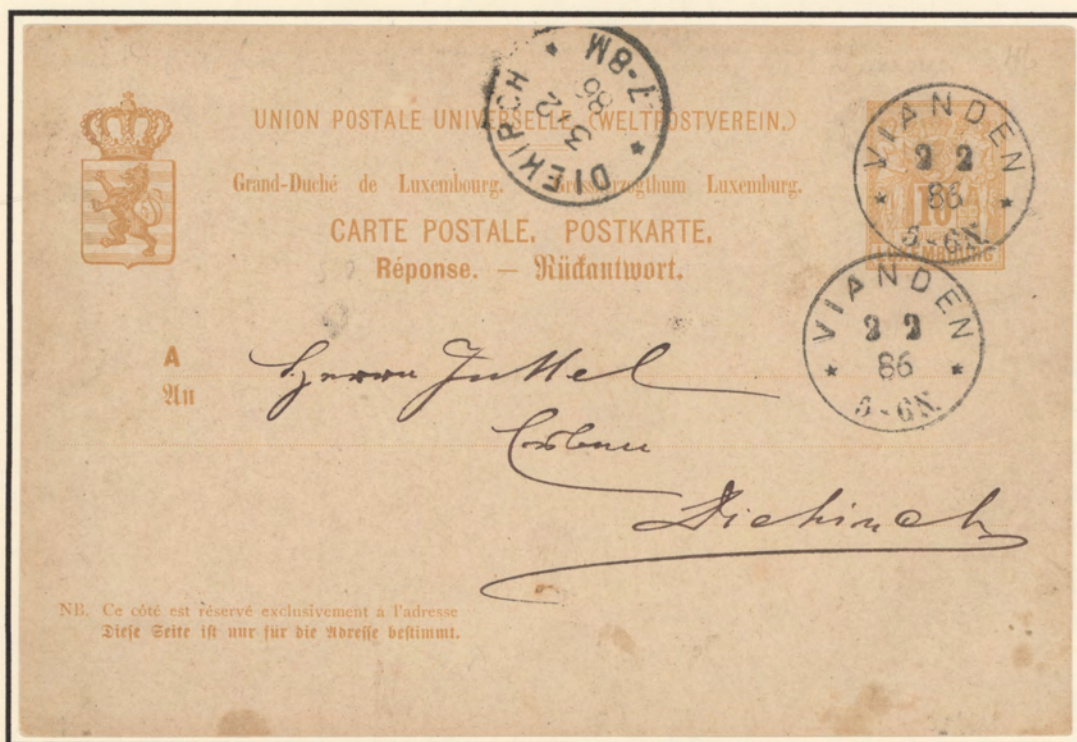 UNION POSTALE UNIVERSELLE (WELTPOSTVEREIN.)
Grand-Duché de Luxembourg. Grossherzogthum Luxemburg.
CARTE POSTALE. POSTKARTE.
Réponse. — Rückantwort.
DIEKIRCH
3 12
86
7-8M
VIANDEN
2 2
86
5-6N.
10
LUXEMBOURG
VIANDEN
2 2
86
5-6N.
A
An
Herrn
Diekirch
NB. Ce côté est réservé exclusivement a l'adresse
Diese Seite ist nur für die Adresse bestimmt.